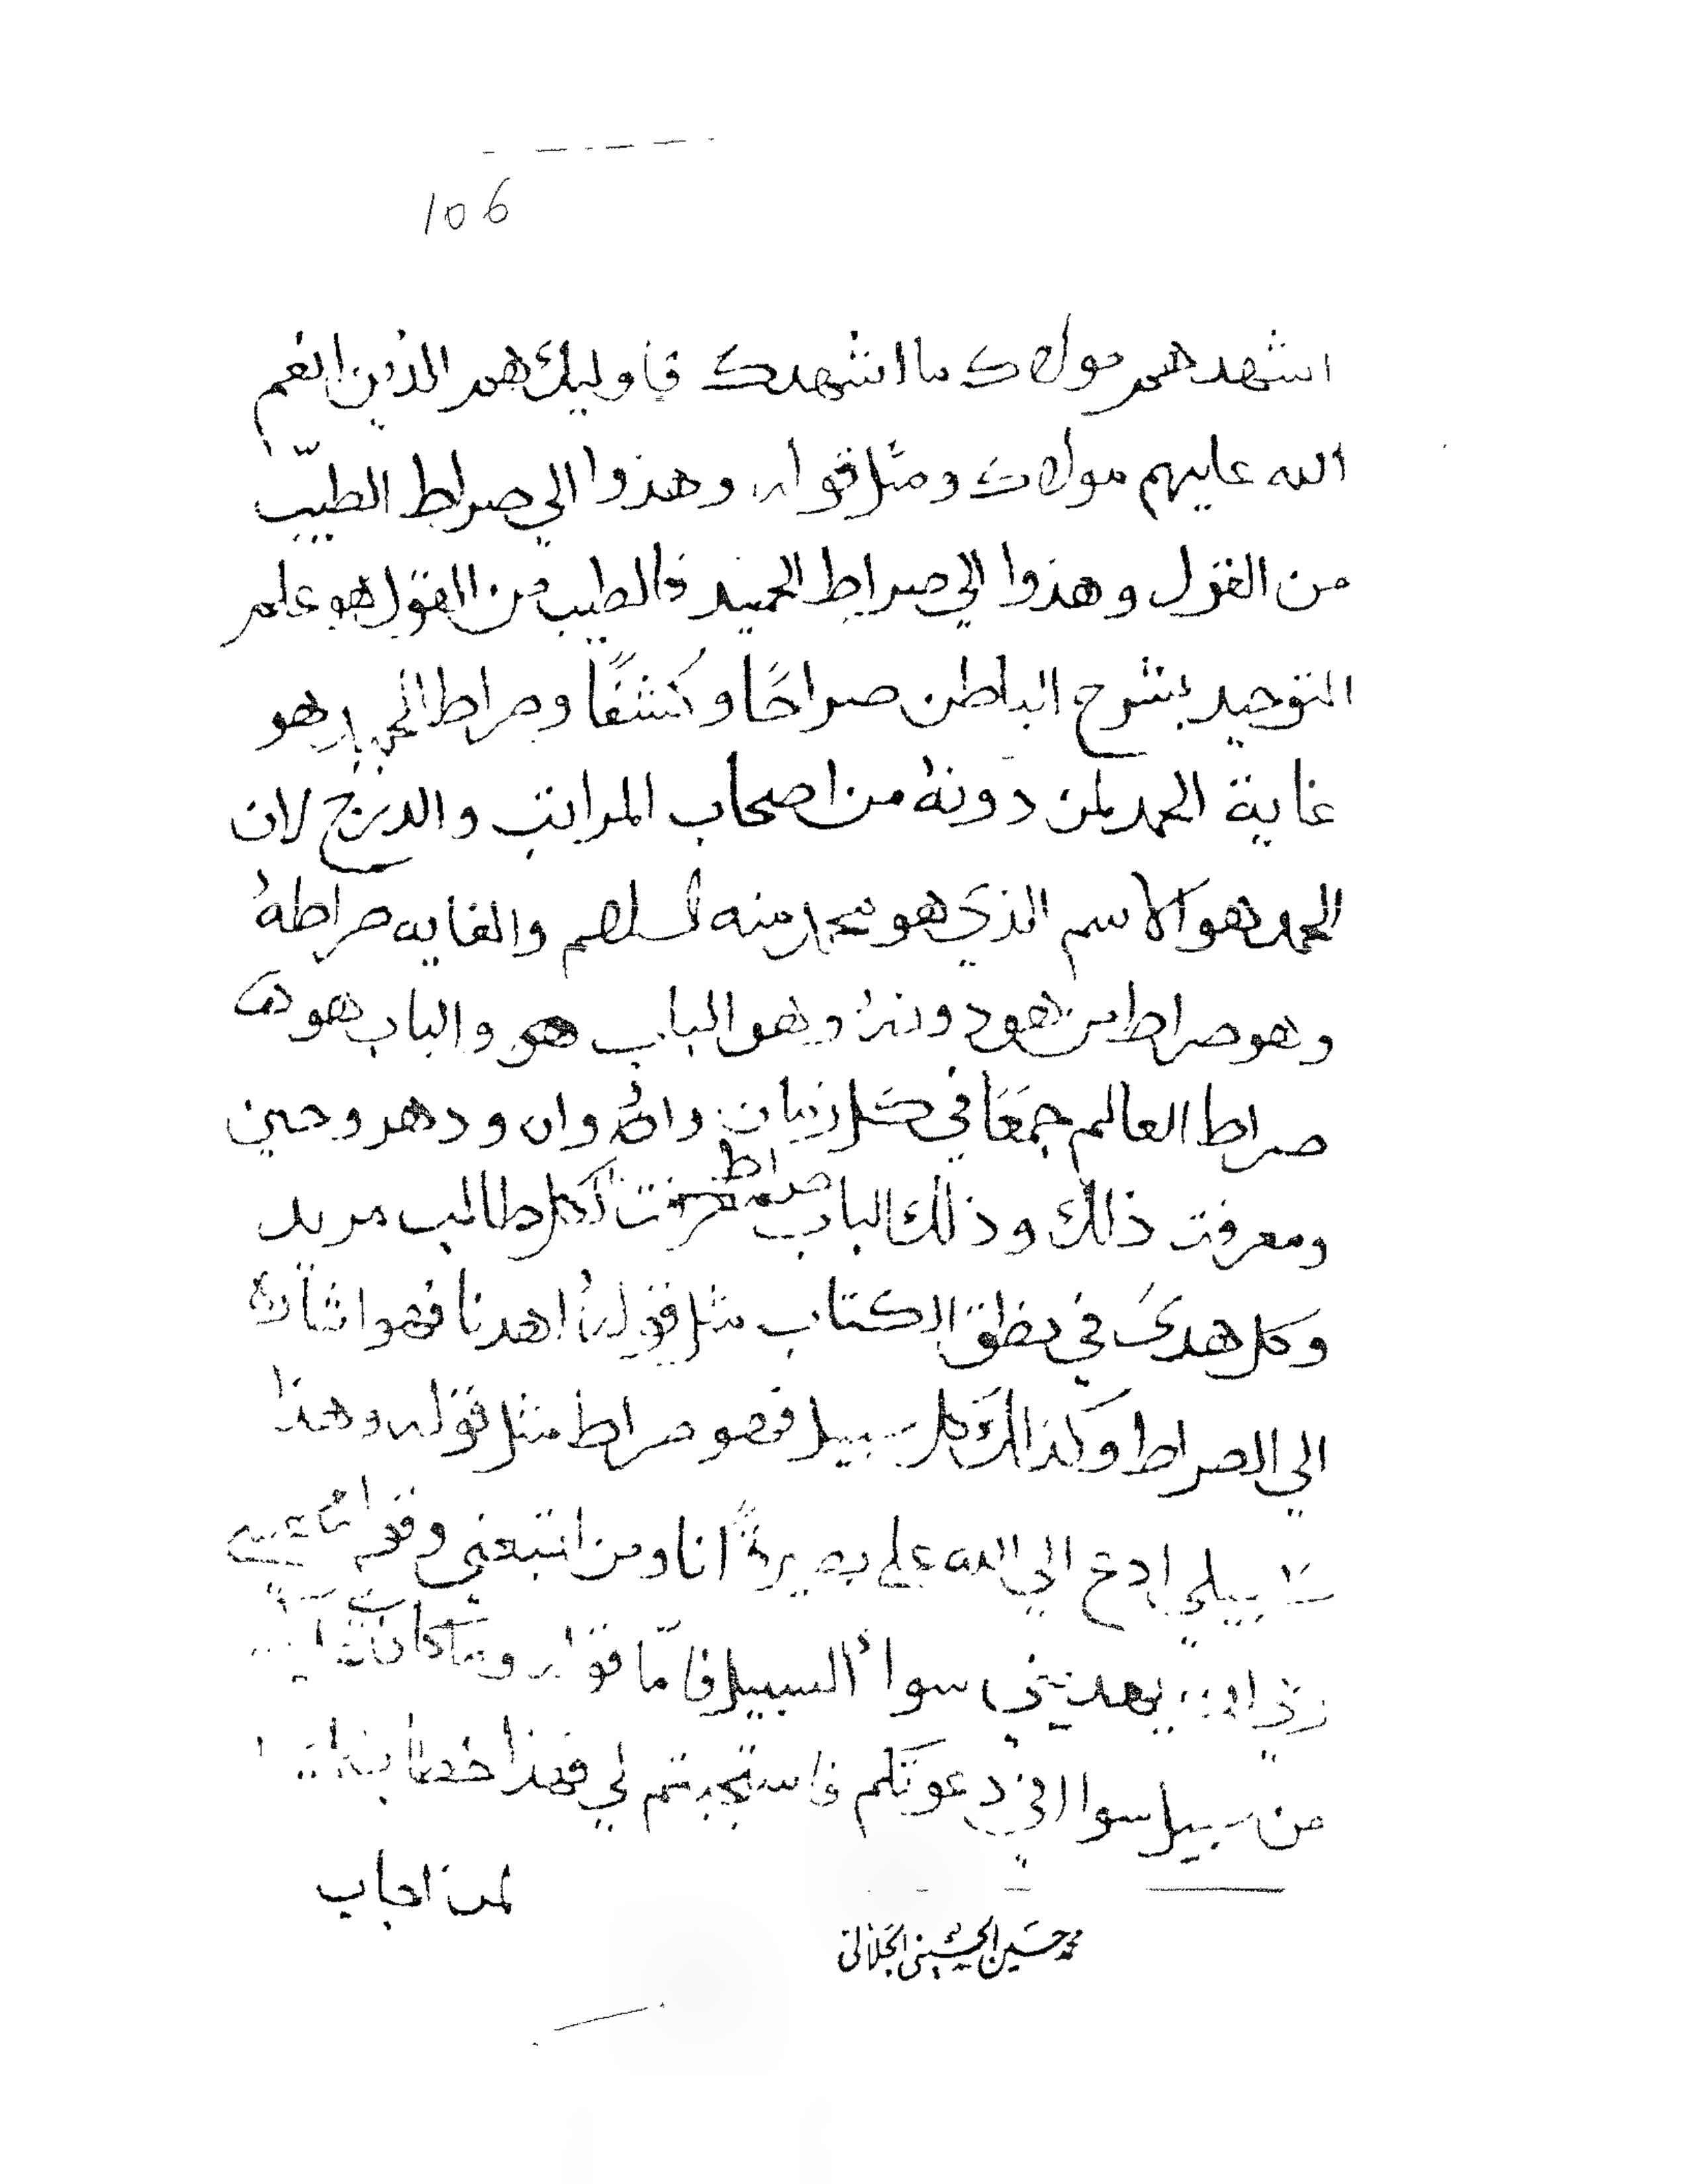 106
اشهدهم مولاك ما اشهدك فاوليك هم الذين انعم
الله عليهم مولاك ومثل قوله وهذوا الي صراط الطيّب
من القول وهذوا الي صراط الحميد فالطيب من القول هو علم
التوحيد بشرح الباطن صراحًا وكشفًا وصراط الحميد هو
غاية الحمد لمن دونهُ من اصحاب المراتب والدرج لان
الحمد هو الاسم الذي هو محمد منه والغايه صراطهُ
وهو صراط من هو دونهُ وهو الباب هو والباب هو
صراط العالم جمعًا في كل زمان واوان ودهر وحين
ومعرفت ذلك وذلك الباب صراط لكل طالب مريد
وكل هدىً في نطق الكتاب مثل قولهُ اهدنا فهو اشارة
الي الصراط وكذالك كل سبيل فهو صراط مثل قوله وهذا
سبيلي ادع الي الله على بصيرةً انا ومن اتبعني وقوله عسى
ربي ان يهديني سوا السبيل فامّا قوله وما كان
من سبيل سوا اني دعوتكم فاستجبتم لي فهذا خطاب
لمن اجاب
محمد حسين الحسيني الجلالي